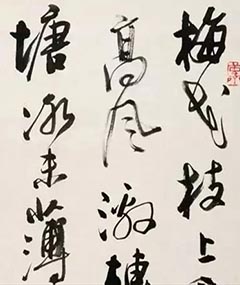 梅花枝上
高风激轉
塘冰未薄